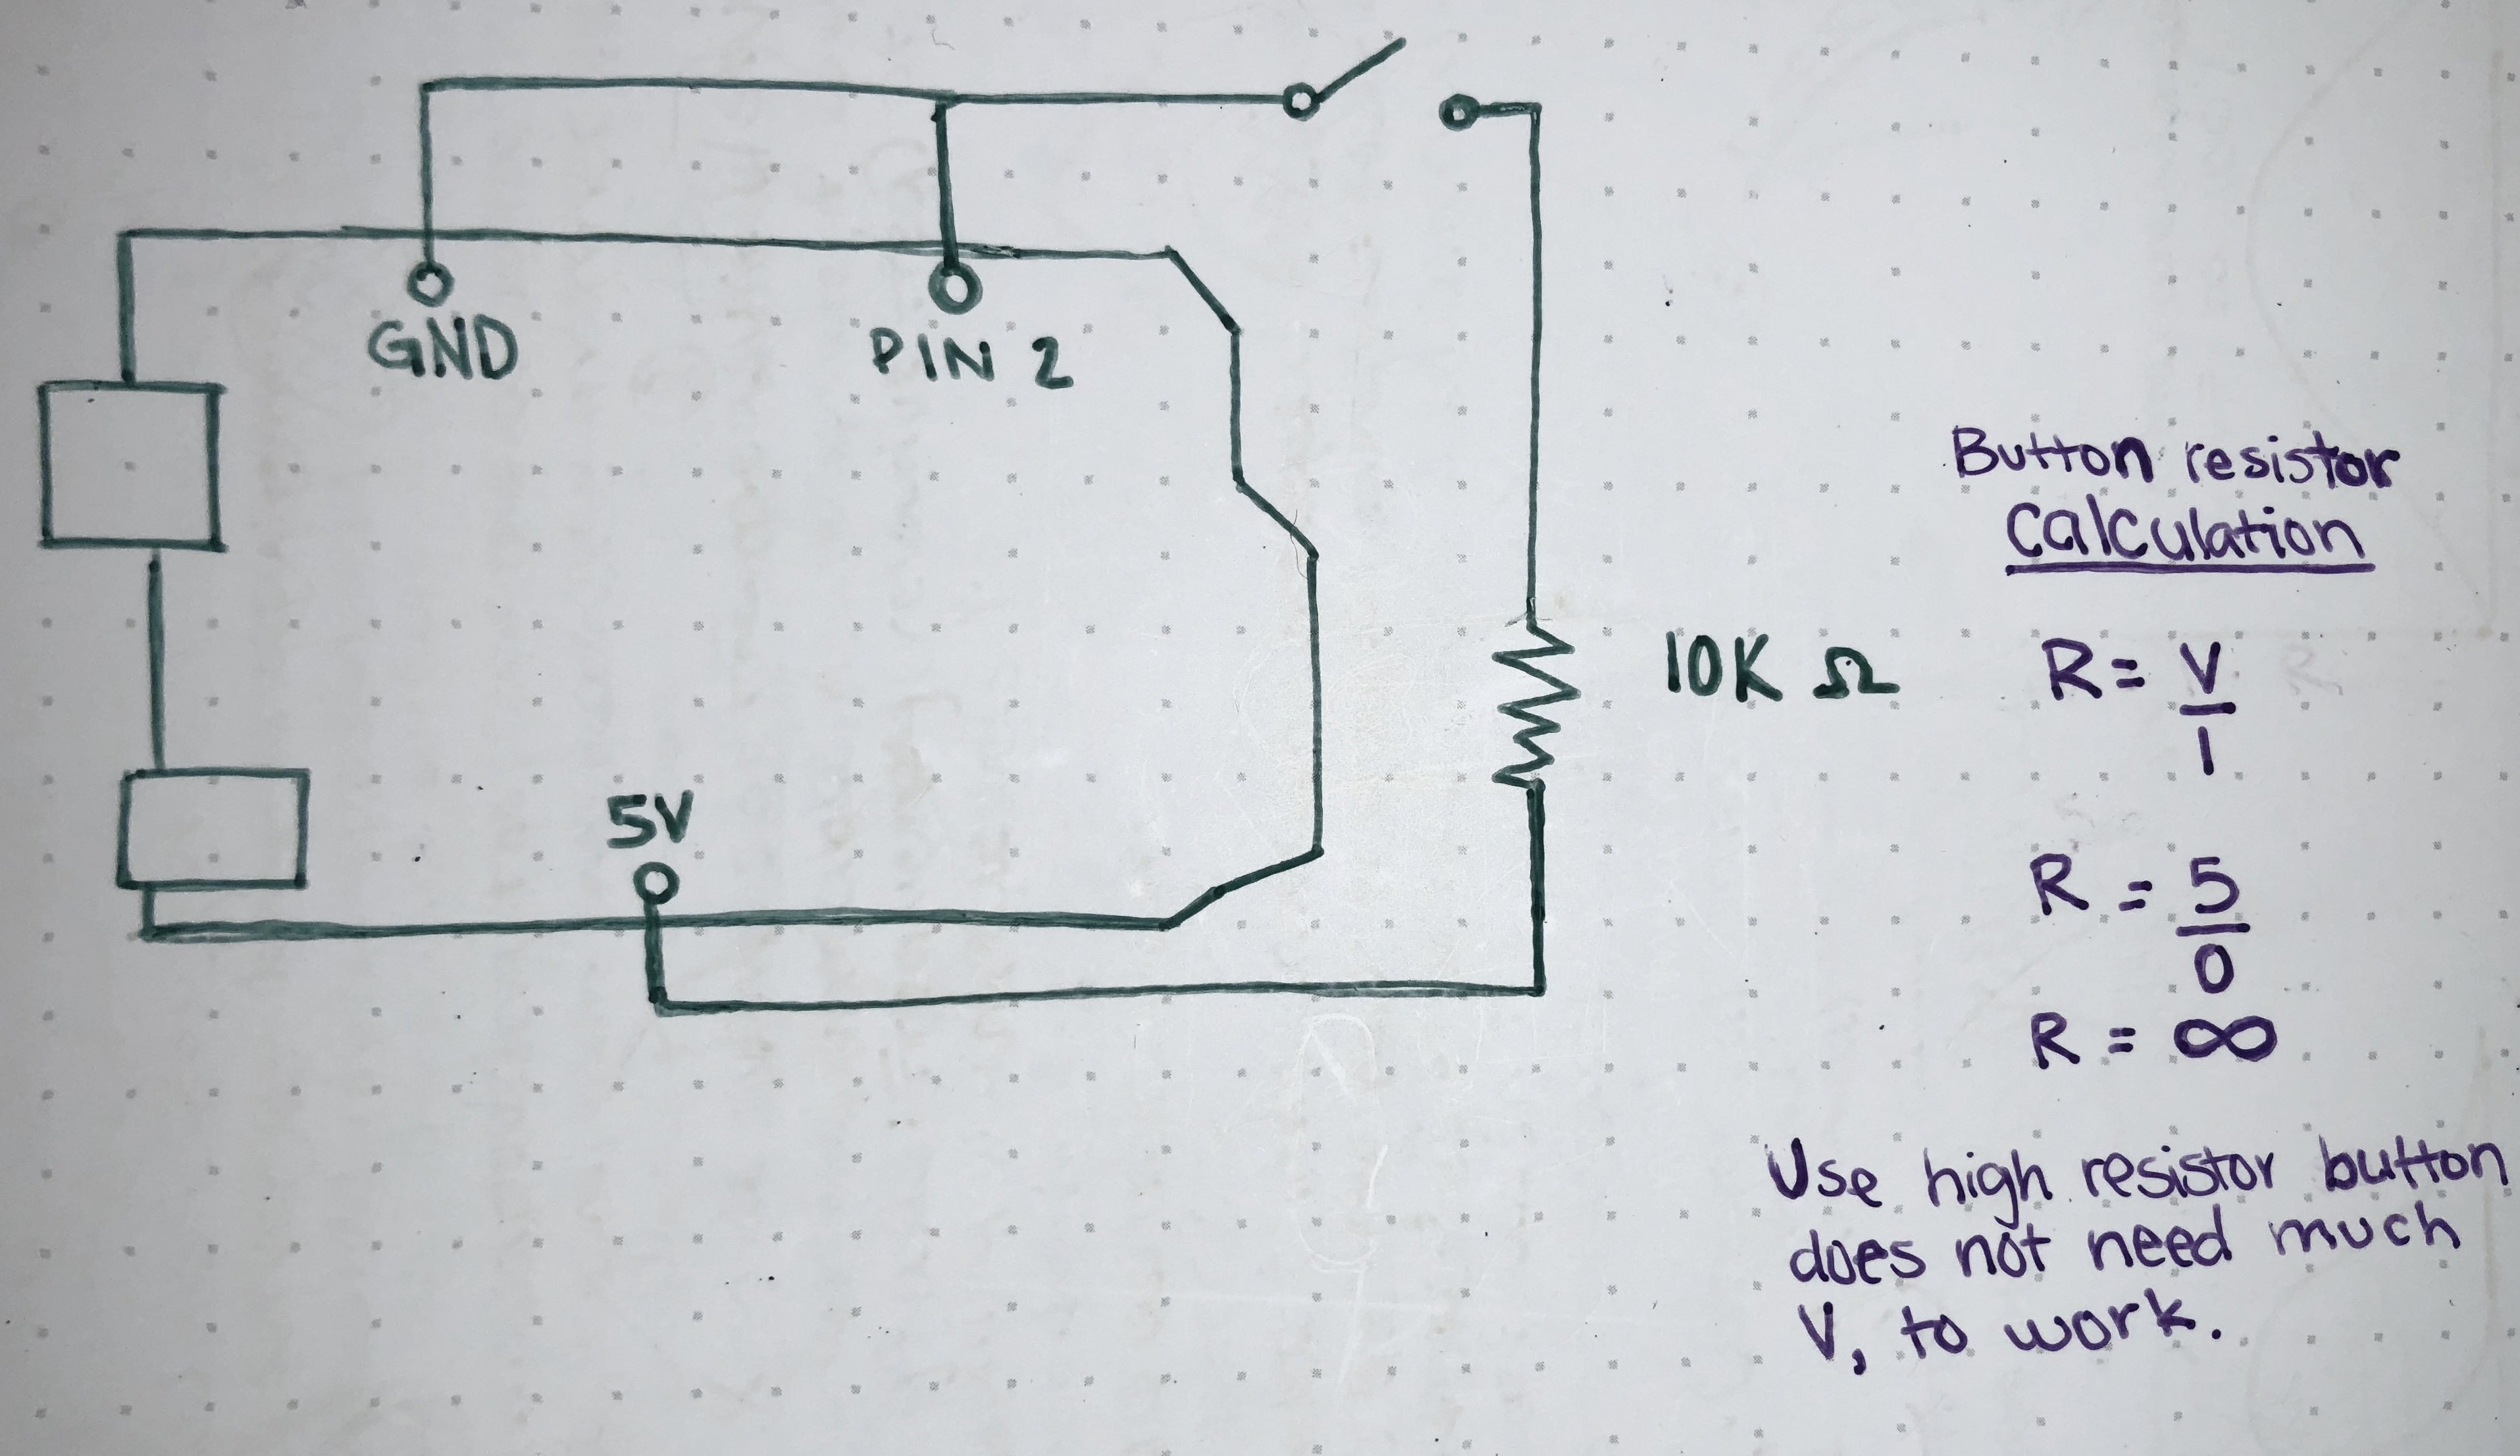 GND
PIN 2
5V
10K Ω
Button resistor
calculation
R = V
I
R = 5
0
R = ∞
Use high resistor button
does not need much
V, to work.